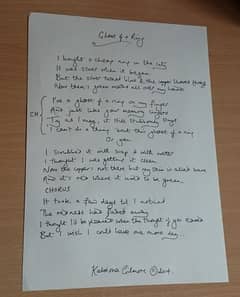 Ghost of a Ring
I bought a cheap ring in the city
It was silver when it began
But the silver faded like & the copper
Now there's green marks all over my hand
CH.
I've a ghost of a ring on my finger
And just like your memory lingers
Try as I may, it still stubbornly stays
I can't do a thing 'bout this ghost of a ring
Or you
I scrubbed it with soap & with water
I thought I was getting it clean
Now the copper's not there but my skin is
And it's red where it used to be green
CHORUS
It took a few days til I noticed
The redness had faded away
I thought I'd be pleased when the thought of you
But I wish I could have one more day...